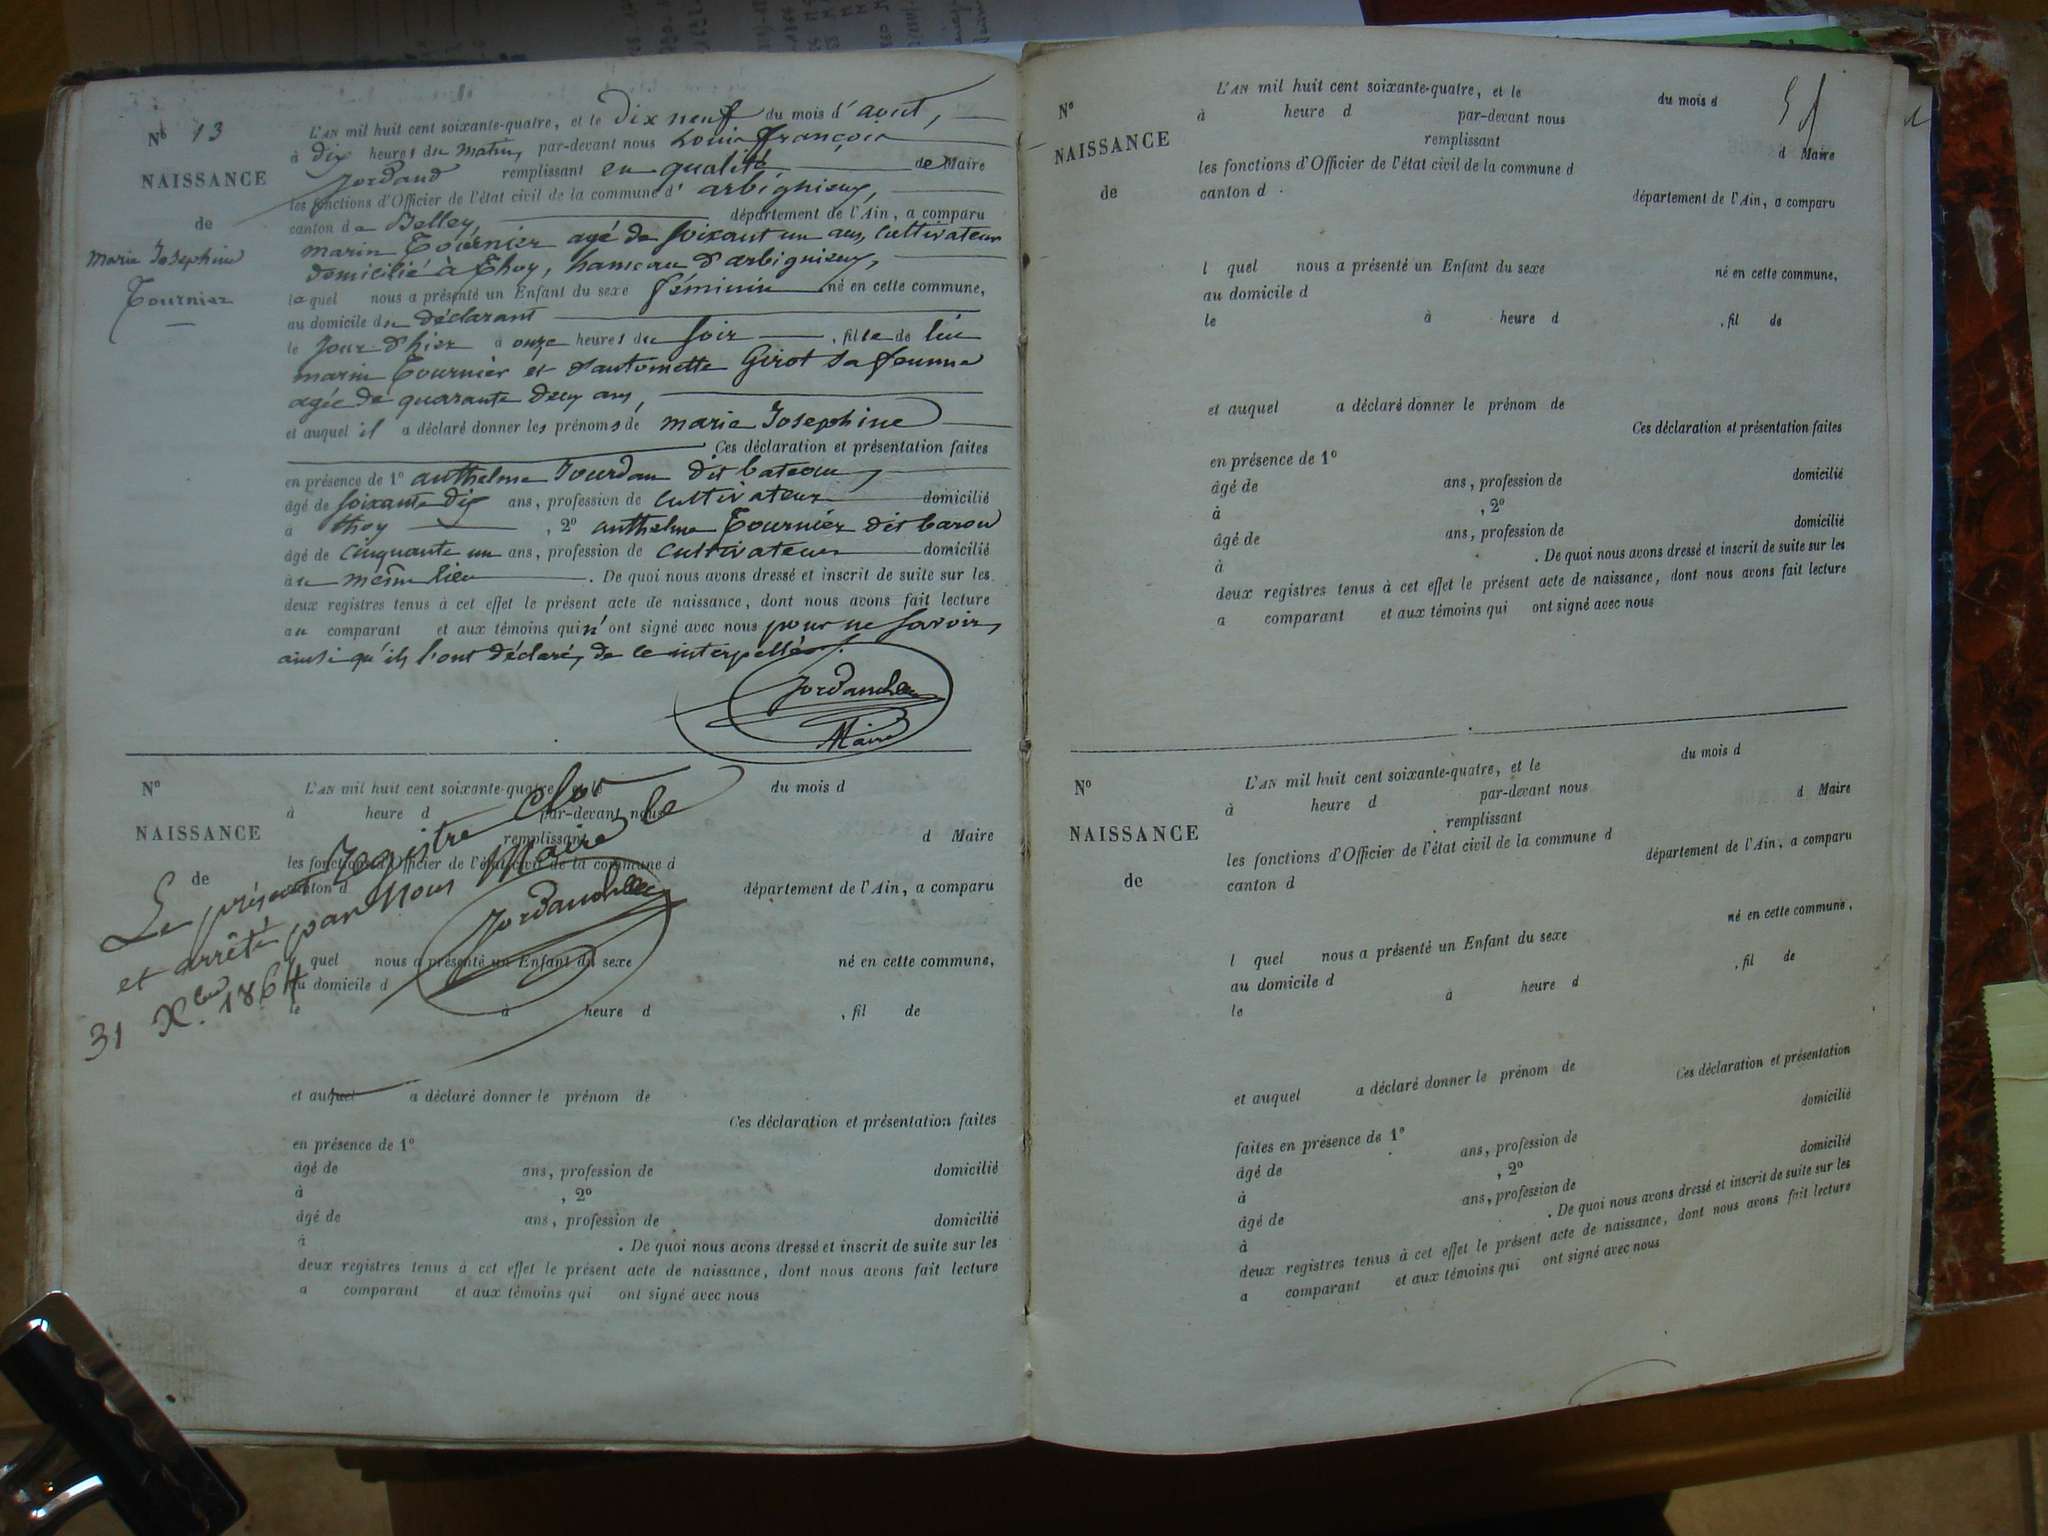 Nº 13
NAISSANCE
de
Marie Josephine
Tournier
L'AN mil huit cent soixante-quatre, et le dix neuf du mois d'aout,
à dix heures du matin, par-devant nous Louis françois
Jordand remplissant en qualité de Maire
les fonctions d'Officier de l'état civil de la commune d'arbignieux,
canton de Belley, département de l'Ain, a comparu
marin Tournier agé de soixant un ans, cultivateur
domicilié à Thoy, hameau d'arbignieux,
lequel nous a présenté un Enfant du sexe féminin né en cette commune,
au domicile du déclarant
le jour d'hier à onze heures du soir, fille de lui
marin Tournier et d'antoinette Girot sa femme
agée de quarante deux ans,
et auquel il a déclaré donner les prénoms de marie Josephine
Ces déclaration et présentation faites
en présence de 1º anthelme Jourdan dit bateau,
âgé de soixante dix ans, profession de cultivateur domicilié
à thoy, 2º anthelme Tournier dit baron
âgé de cinquante un ans, profession de cultivateur domicilié
au même lieu. De quoi nous avons dressé et inscrit de suite sur les
deux registres tenus à cet effet le présent acte de naissance, dont nous avons fait lecture
au comparant et aux témoins qui n'ont signé avec nous pour ne savoir,
ainsi qu'ils l'ont déclaré, de ce interpellés.
Maire
Nº
NAISSANCE
de
L'AN mil huit cent soixante-quatre, et le du mois d
à heure d par-devant nous
remplissant d Maire
les fonctions d'Officier de l'état civil de la commune d
canton d département de l'Ain, a comparu
l quel nous a présenté un Enfant du sexe né en cette commune,
au domicile d
le à heure d , fil de
et auquel a déclaré donner le prénom de
Ces déclaration et présentation faites
en présence de 1º
âgé de ans, profession de domicilié
à , 2º
âgé de ans, profession de domicilié
à . De quoi nous avons dressé et inscrit de suite sur les
deux registres tenus à cet effet le présent acte de naissance, dont nous avons fait lecture
a comparant et aux témoins qui ont signé avec nous
Le présent registre clos
et arrêté par Nous Maire le
31 Xbre 1864
Nº
NAISSANCE
de
L'AN mil huit cent soixante-quatre, et le du mois d
à heure d par-devant nous
remplissant d Maire
les fonctions d'Officier de l'état civil de la commune d
canton d département de l'Ain, a comparu
l quel nous a présenté un Enfant du sexe né en cette commune,
au domicile d
le à heure d , fil de
et auquel a déclaré donner le prénom de
Ces déclaration et présentation faites
en présence de 1º
âgé de ans, profession de domicilié
à , 2º
âgé de ans, profession de domicilié
à . De quoi nous avons dressé et inscrit de suite sur les
deux registres tenus à cet effet le présent acte de naissance, dont nous avons fait lecture
a comparant et aux témoins qui ont signé avec nous
Nº
NAISSANCE
de
L'AN mil huit cent soixante-quatre, et le du mois d
à heure d par-devant nous
remplissant d Maire
les fonctions d'Officier de l'état civil de la commune d
canton d département de l'Ain, a comparu
l quel nous a présenté un Enfant du sexe né en cette commune,
au domicile d
le à heure d , fil de
et auquel a déclaré donner le prénom de
Ces déclaration et présentation
faites en présence de 1º
âgé de ans, profession de domicilié
à , 2º
âgé de ans, profession de domicilié
à . De quoi nous avons dressé et inscrit de suite sur les
deux registres tenus à cet effet le présent acte de naissance, dont nous avons fait lecture
a comparant et aux témoins qui ont signé avec nous